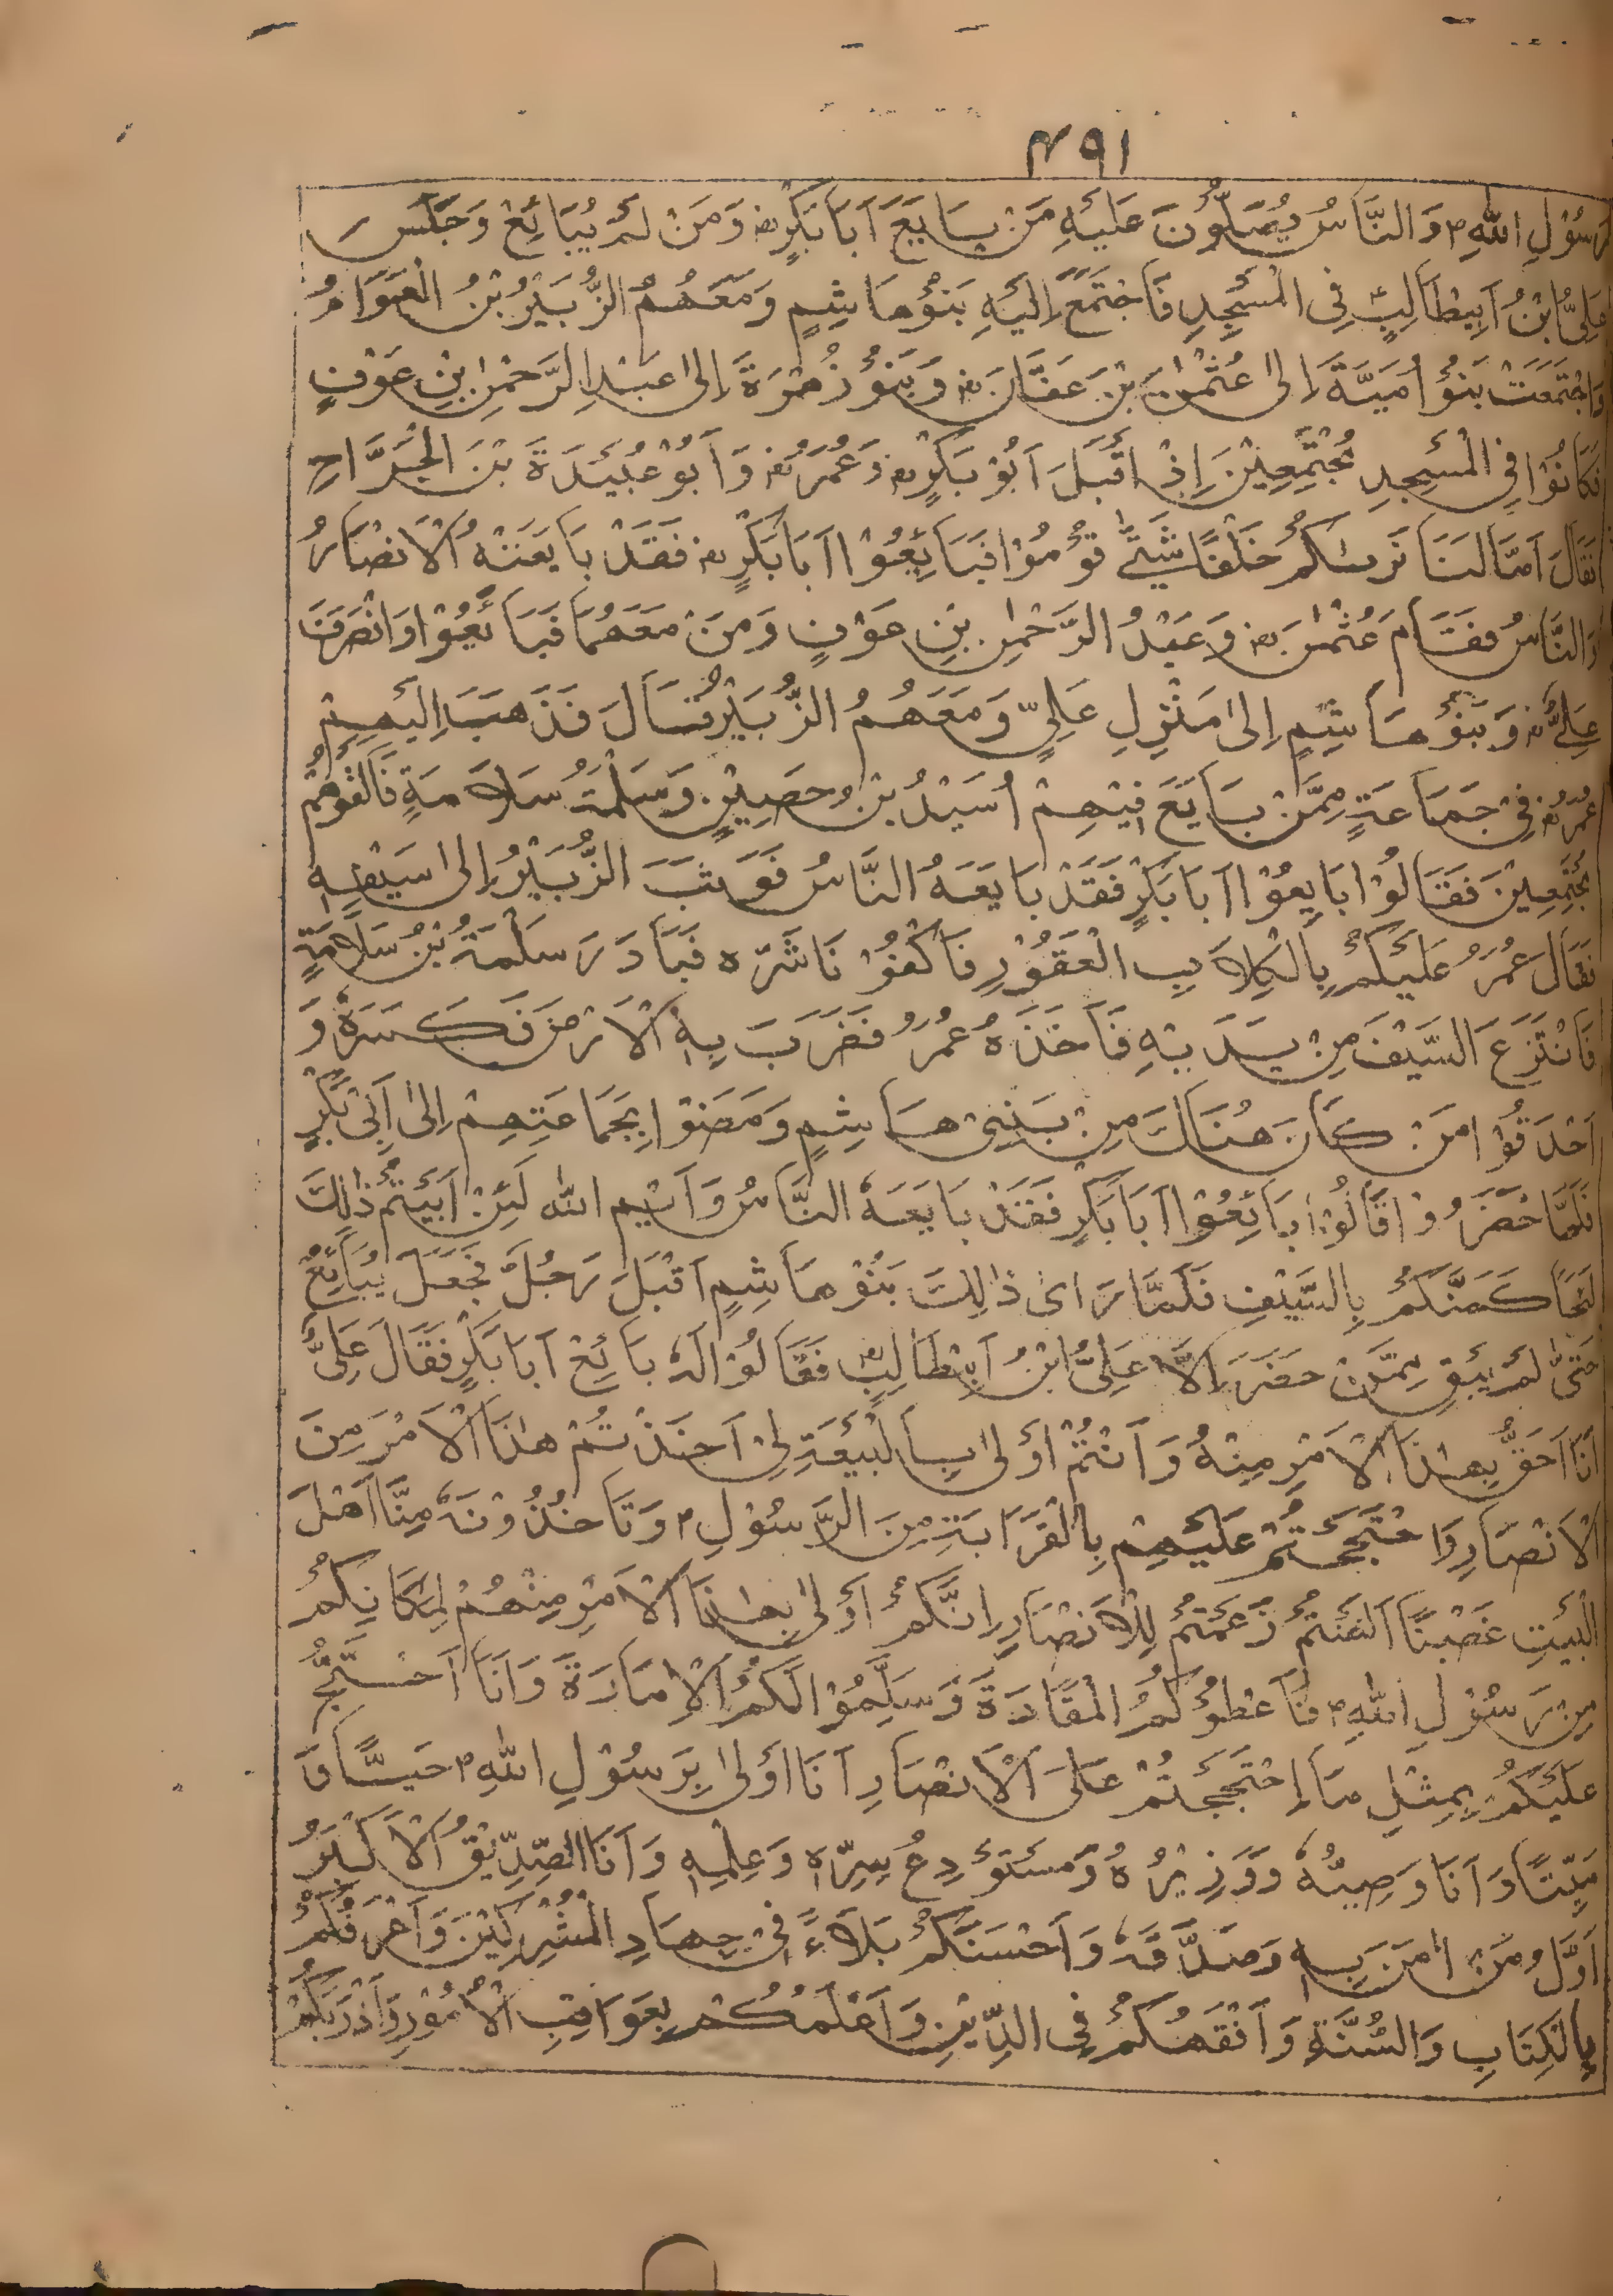 ۴۹۱
رَسُوْلِ اللّٰهِ ؐ وَالنَّاسُ يُصَلُّوْنَ عَلَيْهِ مَنْ بَايَعَ اَبَا بَكْرٍ ؓ وَمَنْ لَمْ يُبَائِعْ وَجَلَسَ
عَلِيُّ ابْنُ اَبِيْطَالِبٍ ؑ فِى الْمَسْجِدِ فَاجْتَمَعَ اِلَيْهِ بَنُوْهَاشِمٍ وَمَعَهُمُ الزُّبَيْرُ بْنُ الْعَوَّامُ
وَاجْتَمَعَتْ بَنُوْ اُمَيَّةَ اِلىٰ عُثْمٰنَ بْنَ عَفَّانَ ؓ وَبَنُوْ زُهْرَةَ اِلىٰ عَبْدِ الرَّحْمٰنِ بْنِ عَوْفٍ
فَكَانُوْا فِى الْمَسْجِدِ مُجْتَمِعِيْنَ اِذْ اَقْبَلَ اَبُوْ بَكْرٍ ؓ وَعُمَرُ ؓ وَاَبُوْ عُبَيْدَةَ بْنَ الْجَرَّاحِ
فَقَالَ اَمَّا لَنَا نَرٰىكُمْ خَلْقًا شَتّٰى قُوْمُوْا فَبَائِعُوْا اَبَا بَكْرٍ ؓ فَقَدْ بَايَعَتْهُ الْاَنْصَارُ
وَالنَّاسُ فَقَامَ عُثْمٰنُ ؓ وَعَبْدُ الرَّحْمٰنِ بْنِ عَوْفٍ وَمَنْ مَعَهُمَا فَبَائَعُوْا وَانْصَرَفَ
عَلِىٌّ ؑ وَبَنُوْ هَاشِمٍ اِلىٰ مَنْزِلِ عَلِيٍّ وَمَعَهُمُ الزُّبَيْرُ قَالَ فَذَهَبَ اِلَيْهِمْ
عُمَرُ ؓ فِىْ جَمَاعَةٍ مِمَّنْ بَايَعَ فِيْهِمْ اُسَيْدُ بْنُ حَصِيْنٍ وَسَلْمَةُ سَلَامَةٍ فَالْفَوْهُمْ
مُجْتَمِعِيْنَ فَقَالُوْا بَايِعُوْا اَبَا بَكْرٍ فَقَدْ بَايَعَهُ النَّاسُ فَوَثَبَ الزُّبَيْرُ اِلىٰ سَيْفِهٖ
فَقَالَ عُمَرُ عَلَيْكُمْ بِالْكِلَابِ الْعَقُوْرِ فَاكْفُوْنَا شَرَّه فَبَادَرَ سَلْمَةُ بْنُ سَلَامَةٍ
فَانْتَزَعَ السَّيْفَ مِنْ يَدَيْهِ فَاَخَذَهُ عُمَرُ فَضَرَبَ بِهٖ الْاَرْضَ فَكَسَرَهٗ وَ
اَحْدَقُوْا مَنْ كَانَ هُنَاكَ مِنْ بَنِىْ هَاشِمٍ وَمَضَوْا بِجَمَاعَتِهِمْ اِلىٰ اَبِىْ بَكْرٍ
فَلَمَّا حَضَرُوْا قَالُوْا بَائِعُوْا اَبَا بَكْرٍ فَقَدْ بَايَعَهٗ النَّاسُ وَاَيْمُ اللّٰه لَئِنْ اَبَيْتُمْ ذٰلِكَ
لَنُحَاكَمَنَّكُمْ بِالسَّيْفِ فَلَمَّا رَاىٰ ذٰلِكَ بَنُوْ هَاشِمٍ اَقْبَلَ رَجُلٌ فَجَعَلَ يُبَائِعُ
حَتّٰى لَمْ يَبْقَ مِمَّنْ حَضَرَ اِلَّا عَلِيُّ ابْنُ اَبِيْطَالِبٍ ؑ فَقَالُوْا لَهٗ بَائِعْ اَبَا بَكْرٍ فَقَالَ عَلِىٌّ
اَنَا اَحَقُّ بِهٰذَا الْاَمْرِ مِنْهُ وَاَنْتُمْ اَوْلىٰ بِالْبَيْعَةِ لِىْ اَخَذْتُمْ هٰذَا الْاَمْرَ مِنَ
الْاَنْصَارِ وَاحْتَجَجْتُمْ عَلَيْهِمْ بِالْقَرَابَةِ مِنَ الرَّسُوْلِ ؐ وَتَاخُذُوْنَهٗ مِنَّا اَهْلَ
الْبَيْتِ غَصْبًا اَلَسْتُمْ زَعَمْتُمْ لِلْاَنْصَارِ اِنَّكُمْ اَوْلىٰ بِهٰذَا الْاَمْرِ مِنْهُمْ لِمَكَانِكُمْ
مِنْ رَسُوْلِ اللّٰهِ ؐ فَاَعْطَوْكُمُ الْمَقَادَةَ وَسَلَّمُوْا لَكُمُ الْاِمَارَةَ وَاَنَا اَحْتَجُّ
عَلَيْكُمْ بِمِثْلِ مَا اِحْتَجَجْتُمْ عَلَى الْاَنْصَارِ اَنَا اَوْلىٰ بِرَسُوْلِ اللّٰهِ ؐ حَيًّا وَ
مَيِّتًا وَاَنَا وَصِيُّهٗ وَوَزِيْرُهُ وَمُسْتَوْدِعُ سِرِّهٖ وَعِلْمِهٖ وَاَنَا الصِّدِّيْقُ الْاَكْبَرُ
اَوَّلُ مَنْ اٰمَنَ بِهٖ وَصَدَّقَهٗ وَاَحْسَنَكُمْ بَلَاءً فِىْ جِهَادِ الْمُشْرِكِيْنَ وَاَعْرَفُكُمْ
بِالْكِتَابِ وَالسُّنَّةِ وَاَفْقَهُكُمْ فِى الدِّيْنِ وَاَعْلَمُكُمْ بِعَوَاقِبِ الْاُمُوْرِ وَاَذْرَبُكُمْ